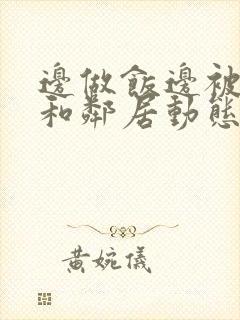 邊做飯邊被
和鄰居動態
黃婉儀